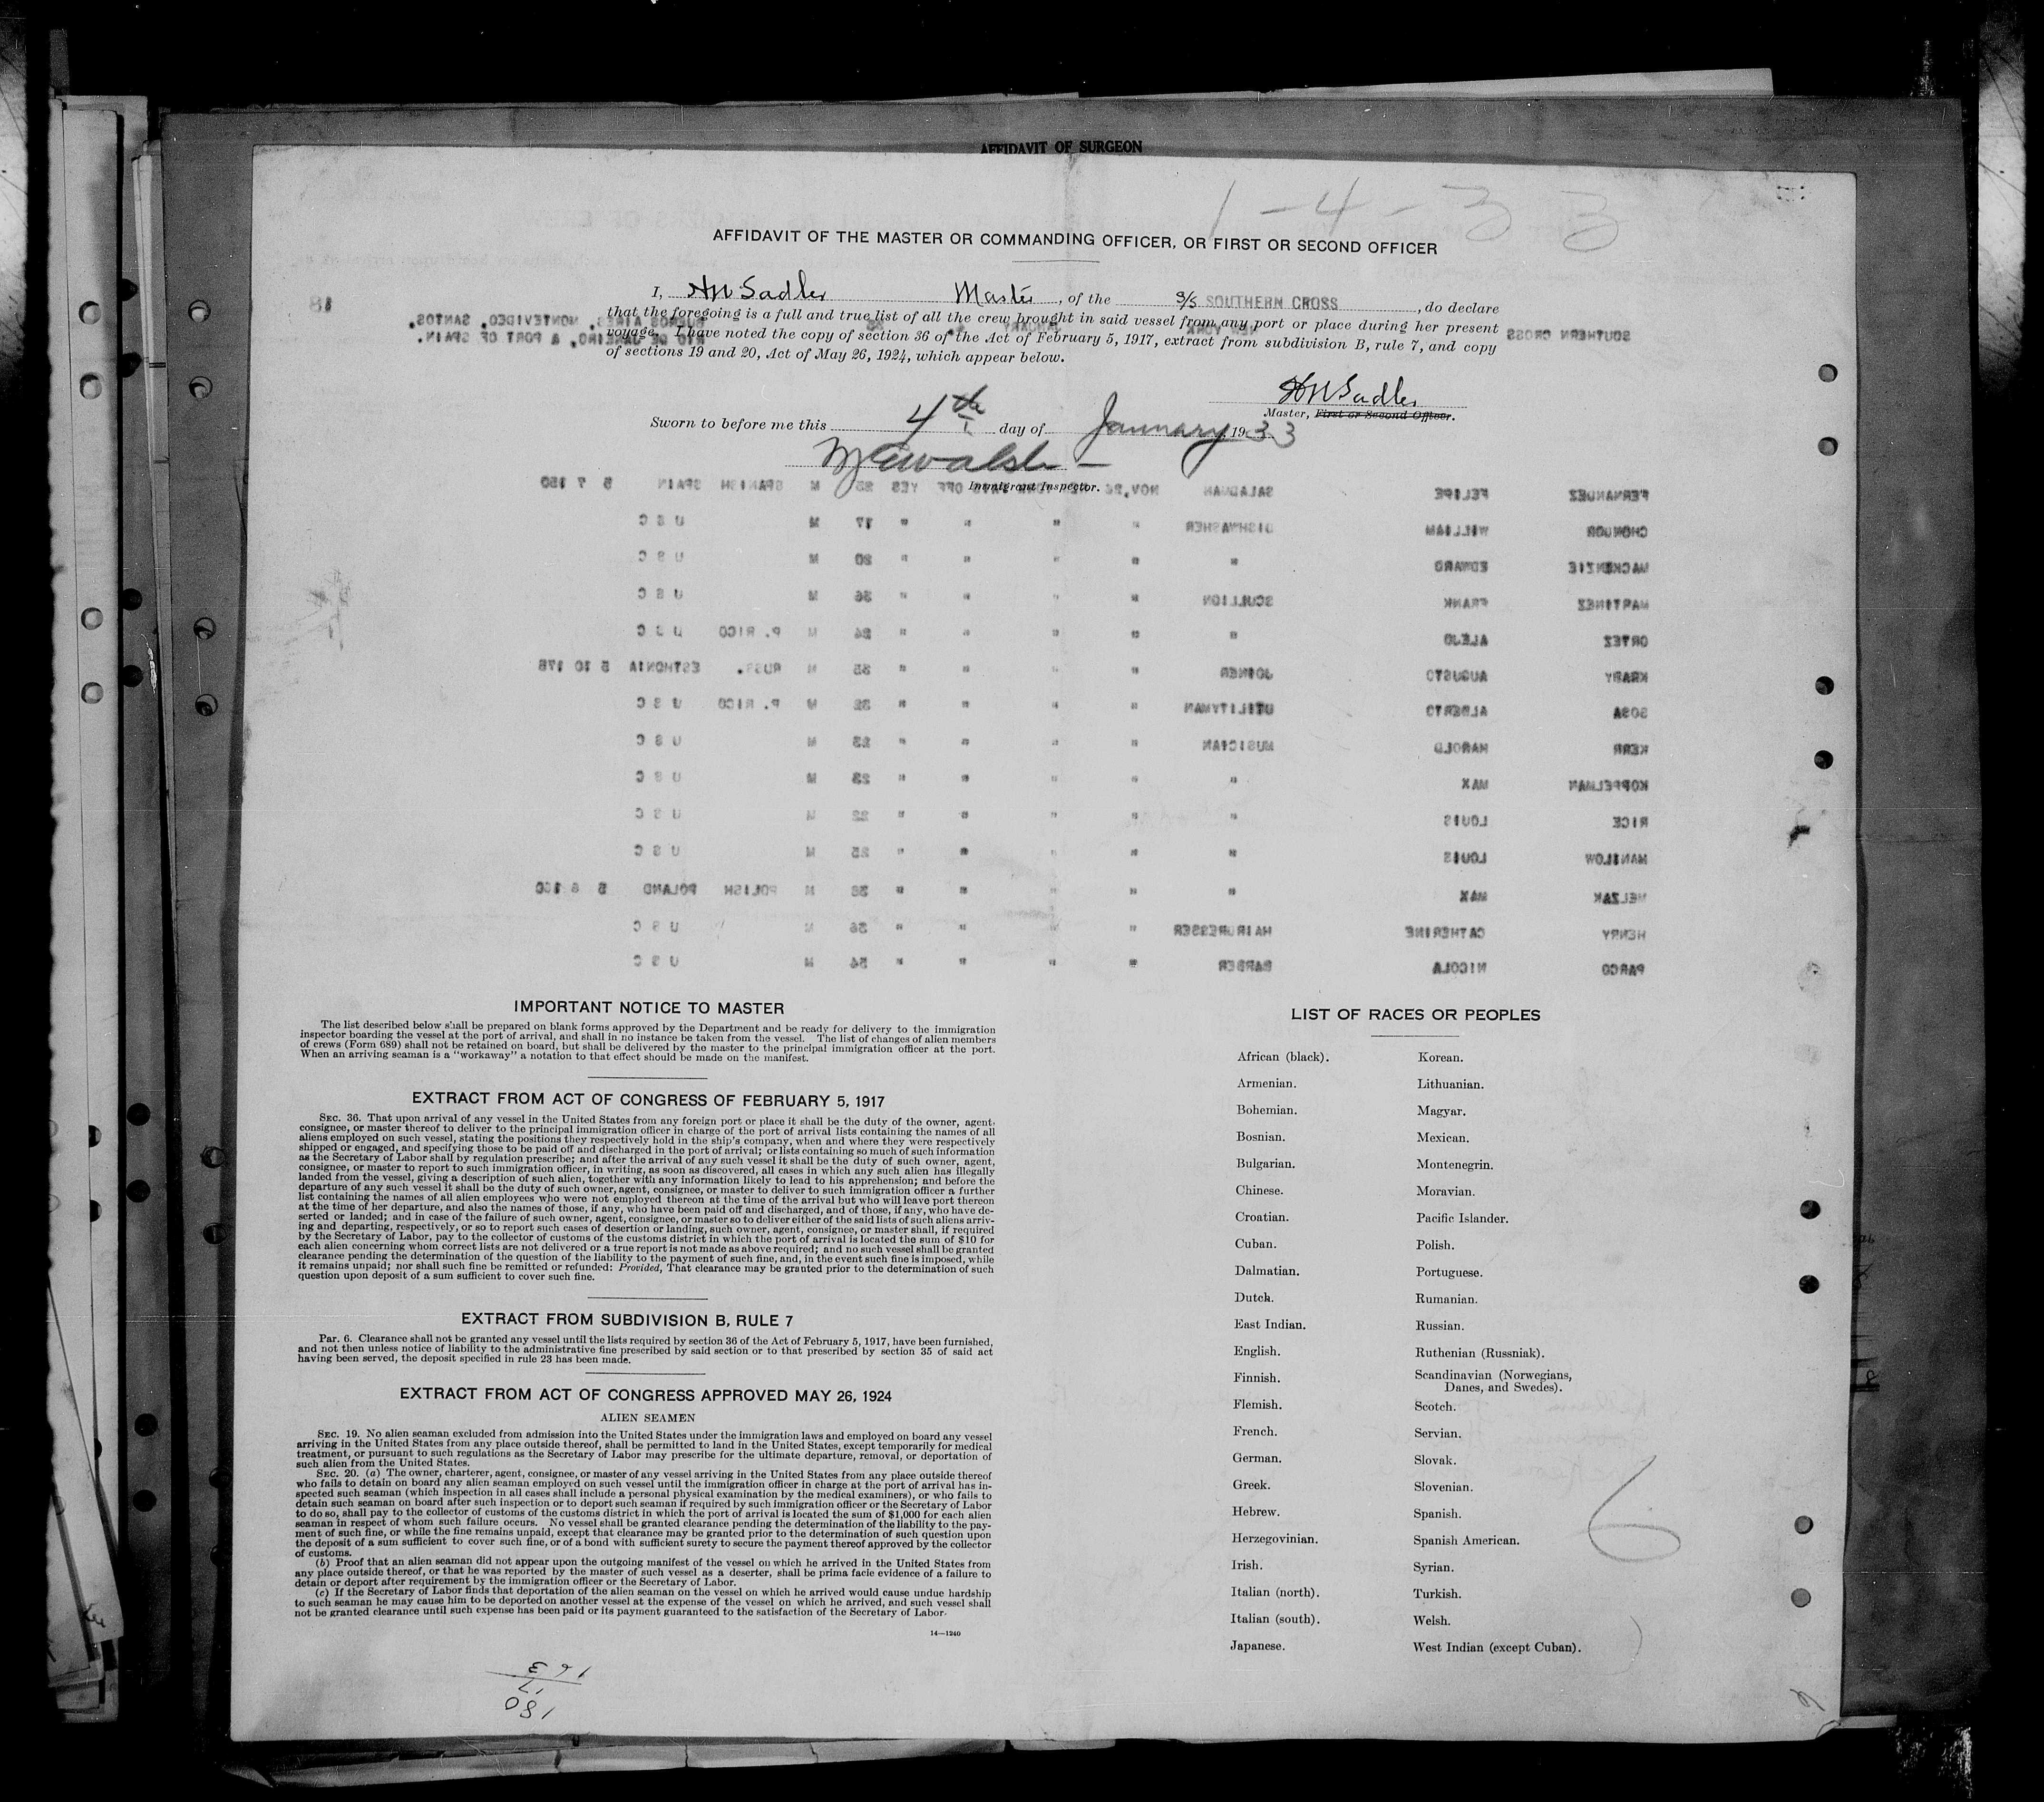 AFFIDAVIT OF SURGEON
1-4-33
AFFIDAVIT OF THE MASTER OR COMMANDING OFFICER, OR FIRST OR SECOND OFFICER
I, HN Sadler Master, of the S/S SOUTHERN CROSS, do declare
that the foregoing is a full and true list of all the crew brought in said vessel from any port or place during her present
voyage. I have noted the copy of section 36 of the Act of February 5, 1917, extract from subdivision B, rule 7, and copy
of sections 19 and 20, Act of May 26, 1924, which appear below.
18
BUENOS AIRES, MONTEVIDEO, SANTOS,
RIO DE JANEIRO, & PORT OF SPAIN.
NEW YORK
SOUTHERN CROSS
HN Sadler
Master, First or Second Officer.
Sworn to before me this 4th day of January, 1933
Walsh
Immigrant Inspector.
FERNANDEZ FELIPE SALADMAN NOV. OFF YES M SPANISH SPAIN 5 7 150
CHOWDOR WILLIAM DISHWASHER " " " " 17 M U S C
MACKENZIE EDWARD " " " " " 20 M U S C
MARTINEZ FRANK SCULLION " " " " 36 M U S C
ORTEZ ALEJO " " " " " 24 M P. RICO U S C
KRABY AUGUSTO JOINER " " " " 35 M RUSS. ESTHONIA 5 10 178
SOSA ALBERTO UTILITYMAN " " " " 32 M P. RICO U S C
KERR HAROLD MUSICIAN " " " " 23 M U S C
KOPPELMAN MAX " " " " " 23 M U S C
RICE LOUIS " " " " " 22 M U S C
MANILOW LOUIS " " " " " 25 M U S C
MELZAK MAX " " " " " 38 M POLISH POLAND 5 6 160
HENRY CATHERINE HAIRDRESSER " " " " 36 M U S C
PARCO NICOLA BARBER " " " " 54 M U S C
IMPORTANT NOTICE TO MASTER
The list described below shall be prepared on blank forms approved by the Department and be ready for delivery to the immigration
inspector boarding the vessel at the port of arrival, and shall in no instance be taken from the vessel. The list of changes of alien members
of crews (Form 689) shall not be retained on board, but shall be delivered by the master to the principal immigration officer at the port.
When an arriving seaman is a "workaway" a notation to that effect should be made on the manifest.
EXTRACT FROM ACT OF CONGRESS OF FEBRUARY 5, 1917
SEC. 36. That upon arrival of any vessel in the United States from any foreign port or place it shall be the duty of the owner, agent,
consignee, or master thereof to deliver to the principal immigration officer in charge of the port of arrival lists containing the names of all
aliens employed on such vessel, stating the positions they respectively hold in the ship's company, when and where they were respectively
shipped or engaged, and specifying those to be paid off and discharged in the port of arrival; or lists containing so much of such information
as the Secretary of Labor shall by regulation prescribe; and after the arrival of any such vessel it shall be the duty of such owner, agent,
consignee, or master to report to such immigration officer, in writing, as soon as discovered, all cases in which any such alien has illegally
landed from the vessel, giving a description of such alien, together with any information likely to lead to his apprehension; and before the
departure of any such vessel it shall be the duty of such owner, agent, consignee, or master to deliver to such immigration officer a further
list containing the names of all alien employees who were not employed thereon at the time of the arrival but who will leave port thereon
at the time of her departure, and also the names of those, if any, who have been paid off and discharged, and of those, if any, who have de-
serted or landed; and in case of the failure of such owner, agent, consignee, or master so to deliver either of the said lists of such aliens arriv-
ing and departing, respectively, or so to report such cases of desertion or landing, such owner, agent, consignee, or master shall, if required
by the Secretary of Labor, pay to the collector of customs of the customs district in which the port of arrival is located the sum of $10 for
each alien concerning whom correct lists are not delivered or a true report is not made as above required; and no such vessel shall be granted
clearance pending the determination of the question of the liability to the payment of such fine, and, in the event such fine is imposed, while
it remains unpaid; nor shall such fine be remitted or refunded: Provided, That clearance may be granted prior to the determination of such
question upon deposit of a sum sufficient to cover such fine.
EXTRACT FROM SUBDIVISION B, RULE 7
Par. 6. Clearance shall not be granted any vessel until the lists required by section 36 of the Act of February 5, 1917, have been furnished,
and not then unless notice of liability to the administrative fine prescribed by said section or to that prescribed by section 35 of said act
having been served, the deposit specified in rule 23 has been made.
EXTRACT FROM ACT OF CONGRESS APPROVED MAY 26, 1924
ALIEN SEAMEN
SEC. 19. No alien seaman excluded from admission into the United States under the immigration laws and employed on board any vessel
arriving in the United States from any place outside thereof, shall be permitted to land in the United States, except temporarily for medical
treatment, or pursuant to such regulations as the Secretary of Labor may prescribe for the ultimate departure, removal, or deportation of
such alien from the United States.
SEC. 20. (a) The owner, charterer, agent, consignee, or master of any vessel arriving in the United States from any place outside thereof
who fails to detain on board any alien seaman employed on such vessel until the immigration officer in charge at the port of arrival has in-
spected such seaman (which inspection in all cases shall include a personal physical examination by the medical examiners), or who fails to
detain such seaman on board after such inspection or to deport such seaman if required by such immigration officer or the Secretary of Labor
to do so, shall pay to the collector of customs of the customs district in which the port of arrival is located the sum of $1,000 for each alien
seaman in respect of whom such failure occurs. No vessel shall be granted clearance pending the determination of the liability to the pay-
ment of such fine, or while the fine remains unpaid, except that clearance may be granted prior to the determination of such question upon
the deposit of a sum sufficient to cover such fine, or of a bond with sufficient surety to secure the payment thereof approved by the collector
of customs.
(b) Proof that an alien seaman did not appear upon the outgoing manifest of the vessel on which he arrived in the United States from
any place outside thereof, or that he was reported by the master of such vessel as a deserter, shall be prima facie evidence of a failure to
detain or deport after requirement by the immigration officer or the Secretary of Labor.
(c) If the Secretary of Labor finds that deportation of the alien seaman on the vessel on which he arrived would cause undue hardship
to such seaman he may cause him to be deported on another vessel at the expense of the vessel on which he arrived, and such vessel shall
not be granted clearance until such expense has been paid or its payment guaranteed to the satisfaction of the Secretary of Labor.
14—1240
163
17
180
LIST OF RACES OR PEOPLES
African (black). Korean.
Armenian. Lithuanian.
Bohemian. Magyar.
Bosnian. Mexican.
Bulgarian. Montenegrin.
Chinese. Moravian.
Croatian. Pacific Islander.
Cuban. Polish.
Dalmatian. Portuguese.
Dutch. Rumanian.
East Indian. Russian.
English. Ruthenian (Russniak).
Finnish. Scandinavian (Norwegians,
Danes, and Swedes).
Flemish. Scotch.
French. Servian.
German. Slovak.
Greek. Slovenian.
Hebrew. Spanish.
Herzegovinian. Spanish American.
Irish. Syrian.
Italian (north). Turkish.
Italian (south). Welsh.
Japanese. West Indian (except Cuban).
6